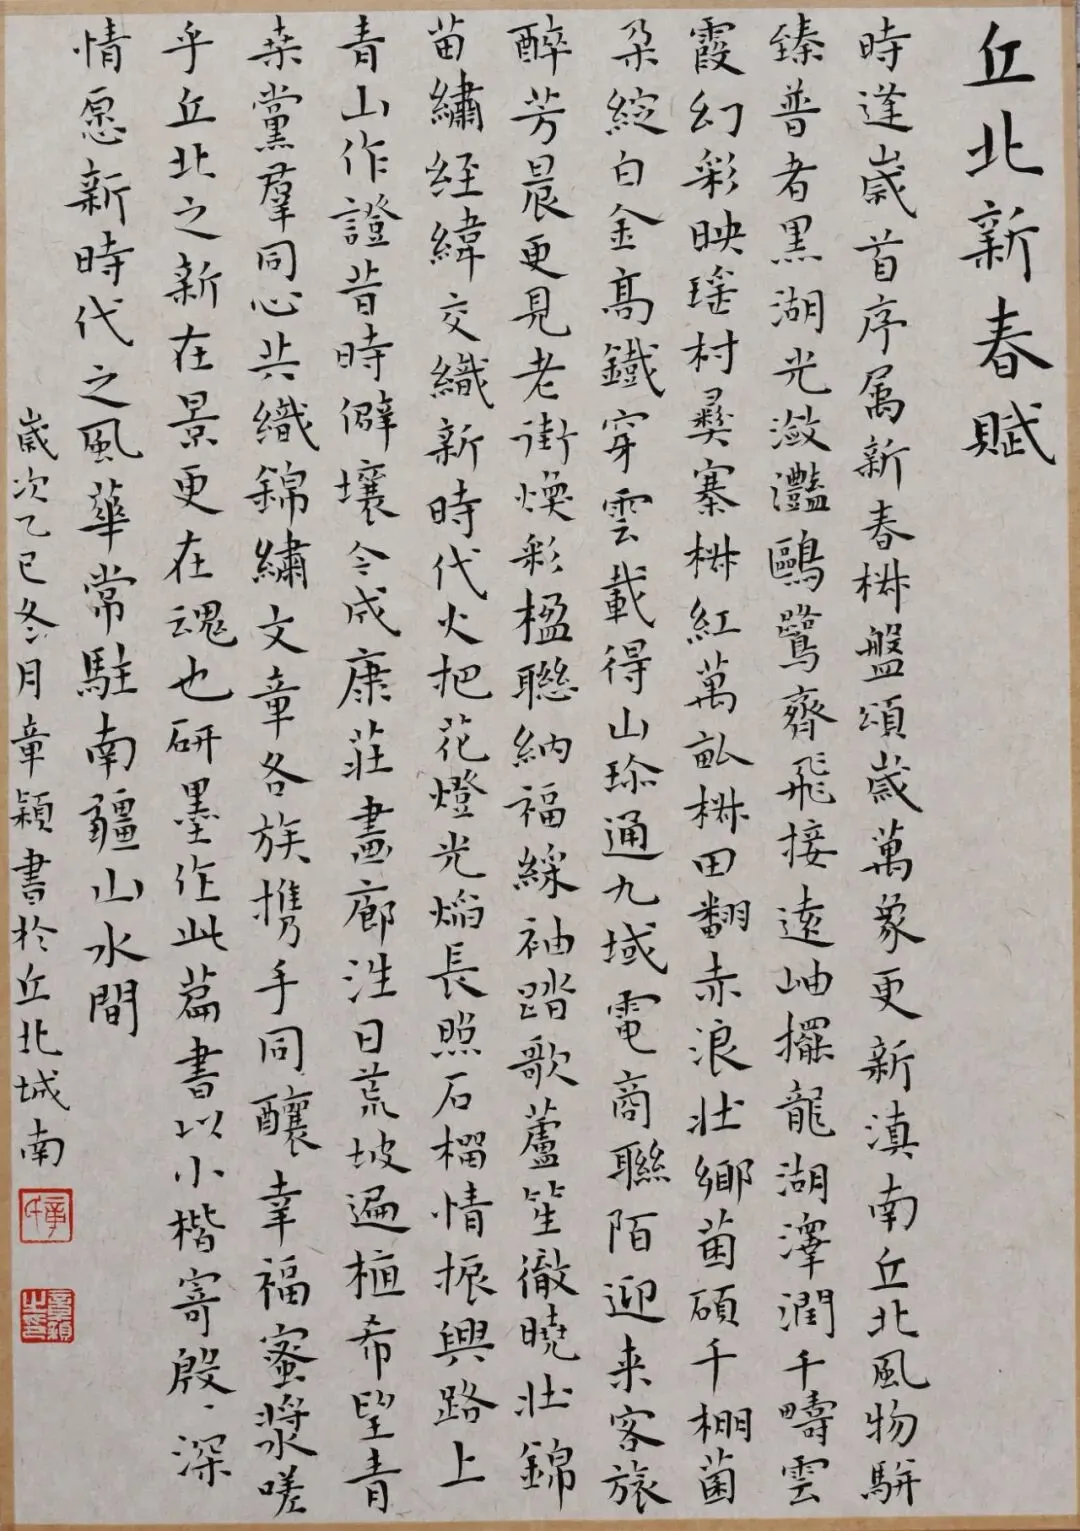 丘北新春賦
時逢歲首序屬新春椒盤頌歲萬象更新滇南丘北風物駢
臻普者黑湖光瀲灩鷗鷺齊飛接遠岫擺龍湖澤潤千疇雲
霞幻彩映瑶村彝寨椒紅萬畝椒田翻赤浪壯鄉菌碩千棚菌
朵綻白金高鐵穿雲載得山珍通九域電商聯陌迎来客旅
醉芳晨更見老街焕彩楹聯納福綵袖踏歌蘆笙徹曉壯錦
苗繡經緯交織新時代火把花燈光焰長照石榴情振興路上
青山作證昔時僻壤今成康莊畫廊往日荒坡遍植希望青
葉黨羣同心共織錦繡文章各族携手同釀幸福蜜漿嗟
乎丘北之新在景更在魂也研墨作此篇書以小楷寄殷、深
情愿新時代之風華常駐南疆山水間
歲次乙巳冬月章穎書於丘北城南
章氏
章穎之印